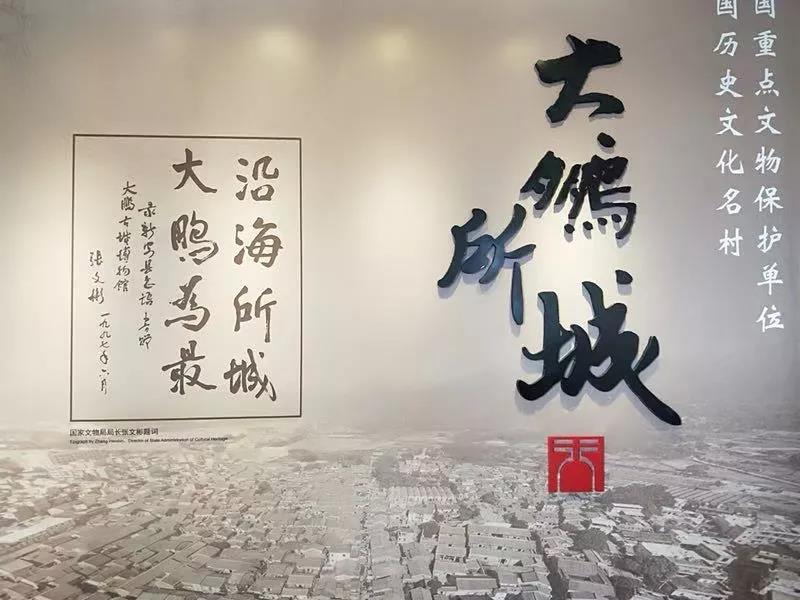 国重点文物保护单位
国历史文化名村
大鵬所城
沿海所城
大鵬為最
大鵬古城博物館
張文彬 一九九七年六月
国家文物局局长张文彬题词
Epigraph by Zhang Wenbin, Director of State Administration of Cultural Heritage